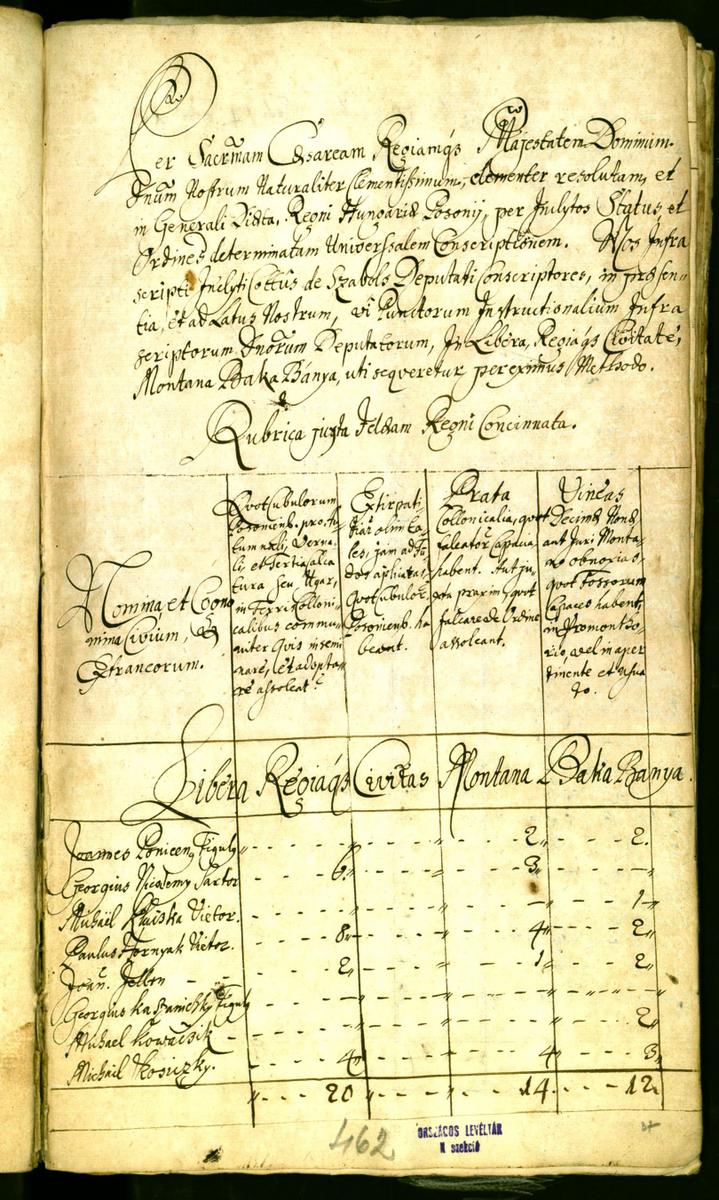 Per Sacrm̃am Cæsaream Regiamqs Majestatem Dominum-
Dnum Nostrum Naturaliter Clementissimum, clementer resolutam, et
in Generali Diæta, Regni Hungariæ Posonij, per Inclytos Status et
Ordines determatam Universalem Conscriptionem. Nos Infra
scripti Inclyti Cottus de Szabols Deputati Conscriptores, in præsen-
tia, et ad Latus Nostrum, vi Punctorum Instructionalium Infra
scriptorum Dnorum Deputatorum, In Libera, Regiaqs Civitate,
Montana Baka Bánya, uti seqveretur per eximus Methodo.
Rubrica juxta Ideam Regni Concinnata.
Nomina et Cogno
mina Civium, &
Extraneorum.
Qvot Cubulorum
Posoniens. pro Au
tumnali, Verna
li, et Tertia alia
tura seu Ugar,
in Terris Colloni-
calibus commu-
niter Qvis insemi
nare, et adopta
re assoleat?
Extirpati-
tias olim ta-
les, jam ad
Qvot Cubulor.
Posoniens. ha
beant.
Prata
Collonicalia, quot
falcator Capacia
habent. Aut ju-
xta proxim, quot
falcare de Ordine
assoleant.
Vineas
Decimæ Nonæ
aut Juri Monta-
no obnoxias,
quot Fossorum
Capaces habent,
in Promonto-
rio, vel in aper
Libera Regiaqs Civitas Montana Baka Banya.
Joannes Ponicen, Figuly " - - - " - - 2 " - - - 2.
Georgius Nicodemy Sartor - - - 6 " - - " - - 3 " - - - "
Michaël Klaiska Vietor. - - - " - - " - - - 1 "
Paulus Hornyak Vietor - - - 8 " - - " - - 4 " - - - 2 "
Joañ. Jellen - - - 2 " - - " - - 1 " - - - 2 "
Georgius Kaszanichky Figuly - - - " - - " - - "
Michael Kowacsik - - - - " - - " - - " - - - 2 "
Michaël Kosiczky. - - - 4 " - - " - - 4 " - - - 3 "
" - - - 20 " - - - " - - 14 - - - 12.
462
ORSZÁGOS LEVÉLTÁR
N szekció